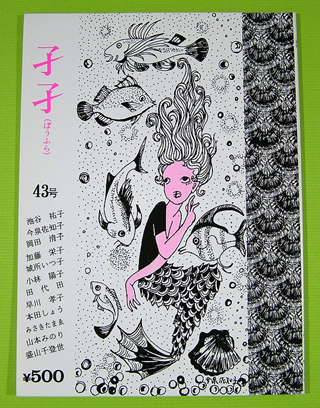 孑孑
(ぼうふら)
43号
池谷 祐子
今泉佐知子
岡田 清子
加藤 栄子
城所いつ子
小林 陽子
田代 田
早川 孝子
本田しょう
みさきたまゑ
山本みのり
盛山千登世
¥500